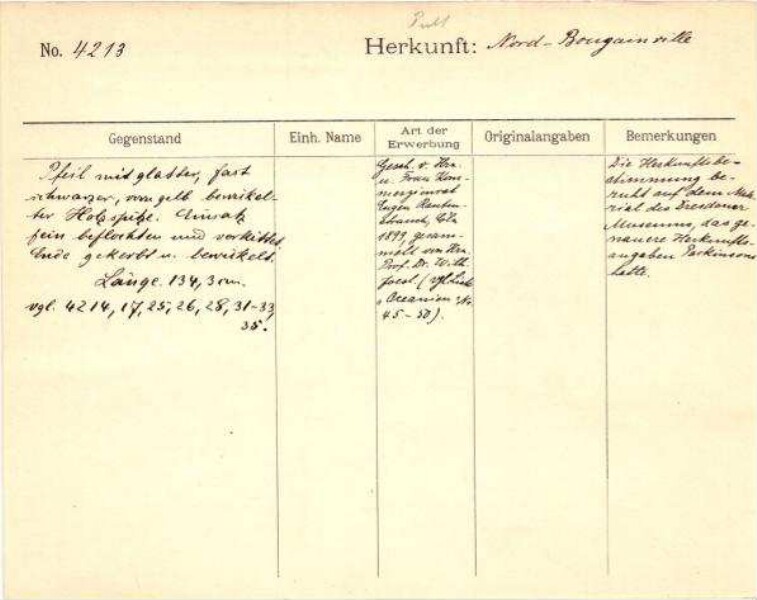 No. 4213
Herkunft: Nord-Bougainville
Gegenstand
Einh. Name
Art der Erwerbung
Originalangaben
Bemerkungen
Pfeil mit glatter, fast
schwarzer, vorn gelb bewickel-
ter Holzspitze. Einsatz
fein beflochten und verkittet.
Ende gekerbt u. bewickelt.
Länge. 134,3 cm.
vgl. 4214, 17, 25, 26, 28, 31-33,
35.
Gesch. v. Hrn.
u. Frau Kom-
merzienrat
Eugen Rauten-
strauch, Cöln
1899, gesam-
melt von Hrn.
Prof. Dr. Wilh.
Joest. (vgl.
Oceanien No
45-50).
Die Herkunftsbe-
stimmung be-
ruht auf dem Mate-
rial des Dresdener
Museums, das ge-
nauere Herkunfts-
angaben Parkinsons
hatte.